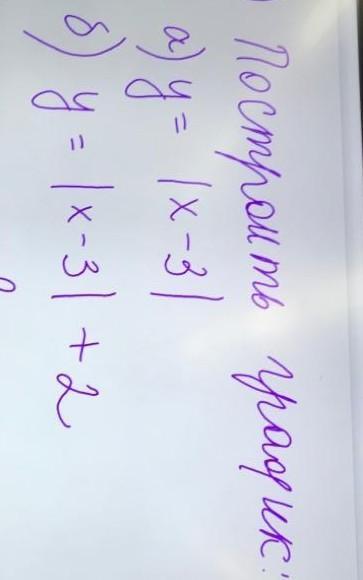 ) Построить график:
а) y = |x-3|
б) y = |x-3| +2